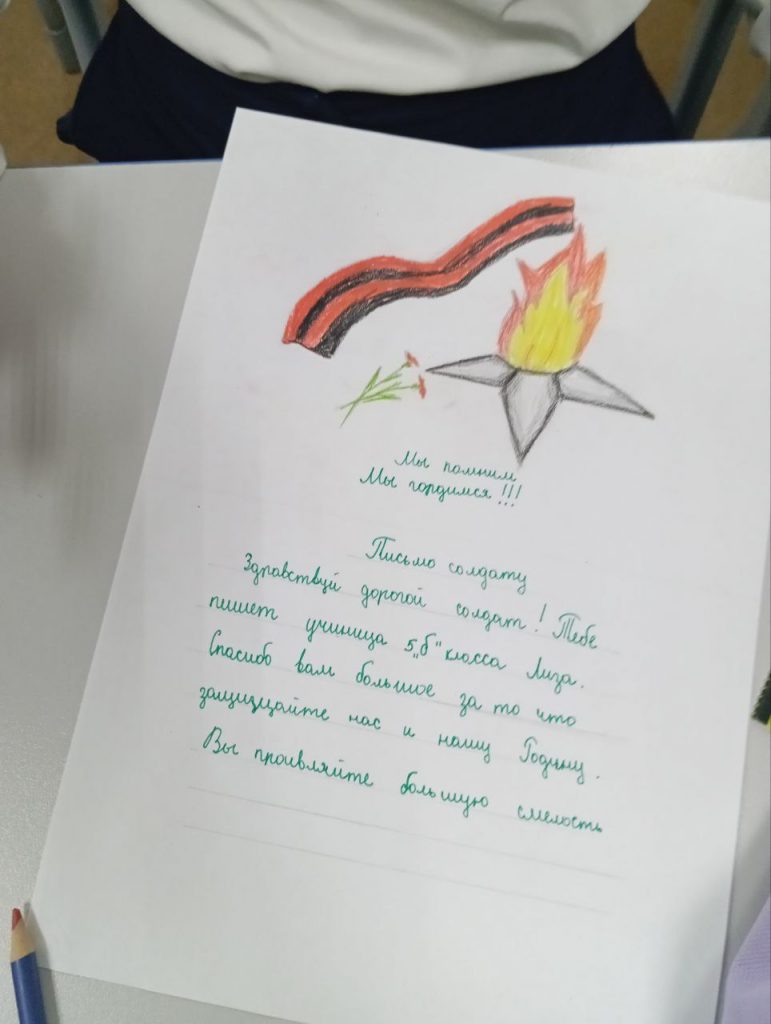 Мы помним
Мы гордимся !!!
Письмо солдату
Здравствуй дорогой солдат! Тебе
пишет учиница 5 „б" класса Лиза.
Спасибо вам большое за то что
защищайте нас и нашу Родину.
Вы проивляйте большую смелость